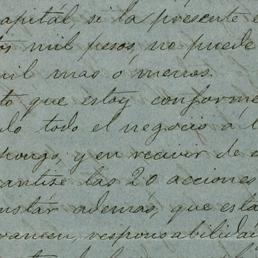 capitál si la presente e
mil pesos, no puede
mil mas o menos.
to que estoy conforme
do todo el negocio a l
y en recivir de e
rantise las 20 acciones
ademas, que esta
responsabilidad